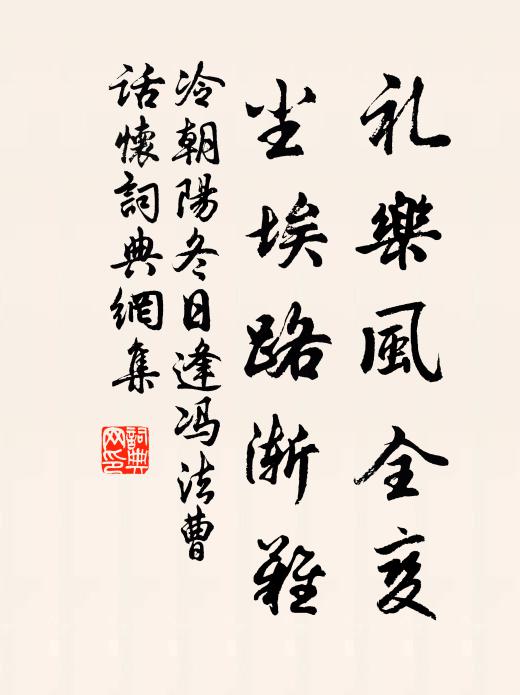 礼樂風全变
尘埃路渐難
冷朝陽冬日逢冯法曹
话懷詞典網集
詞典网印